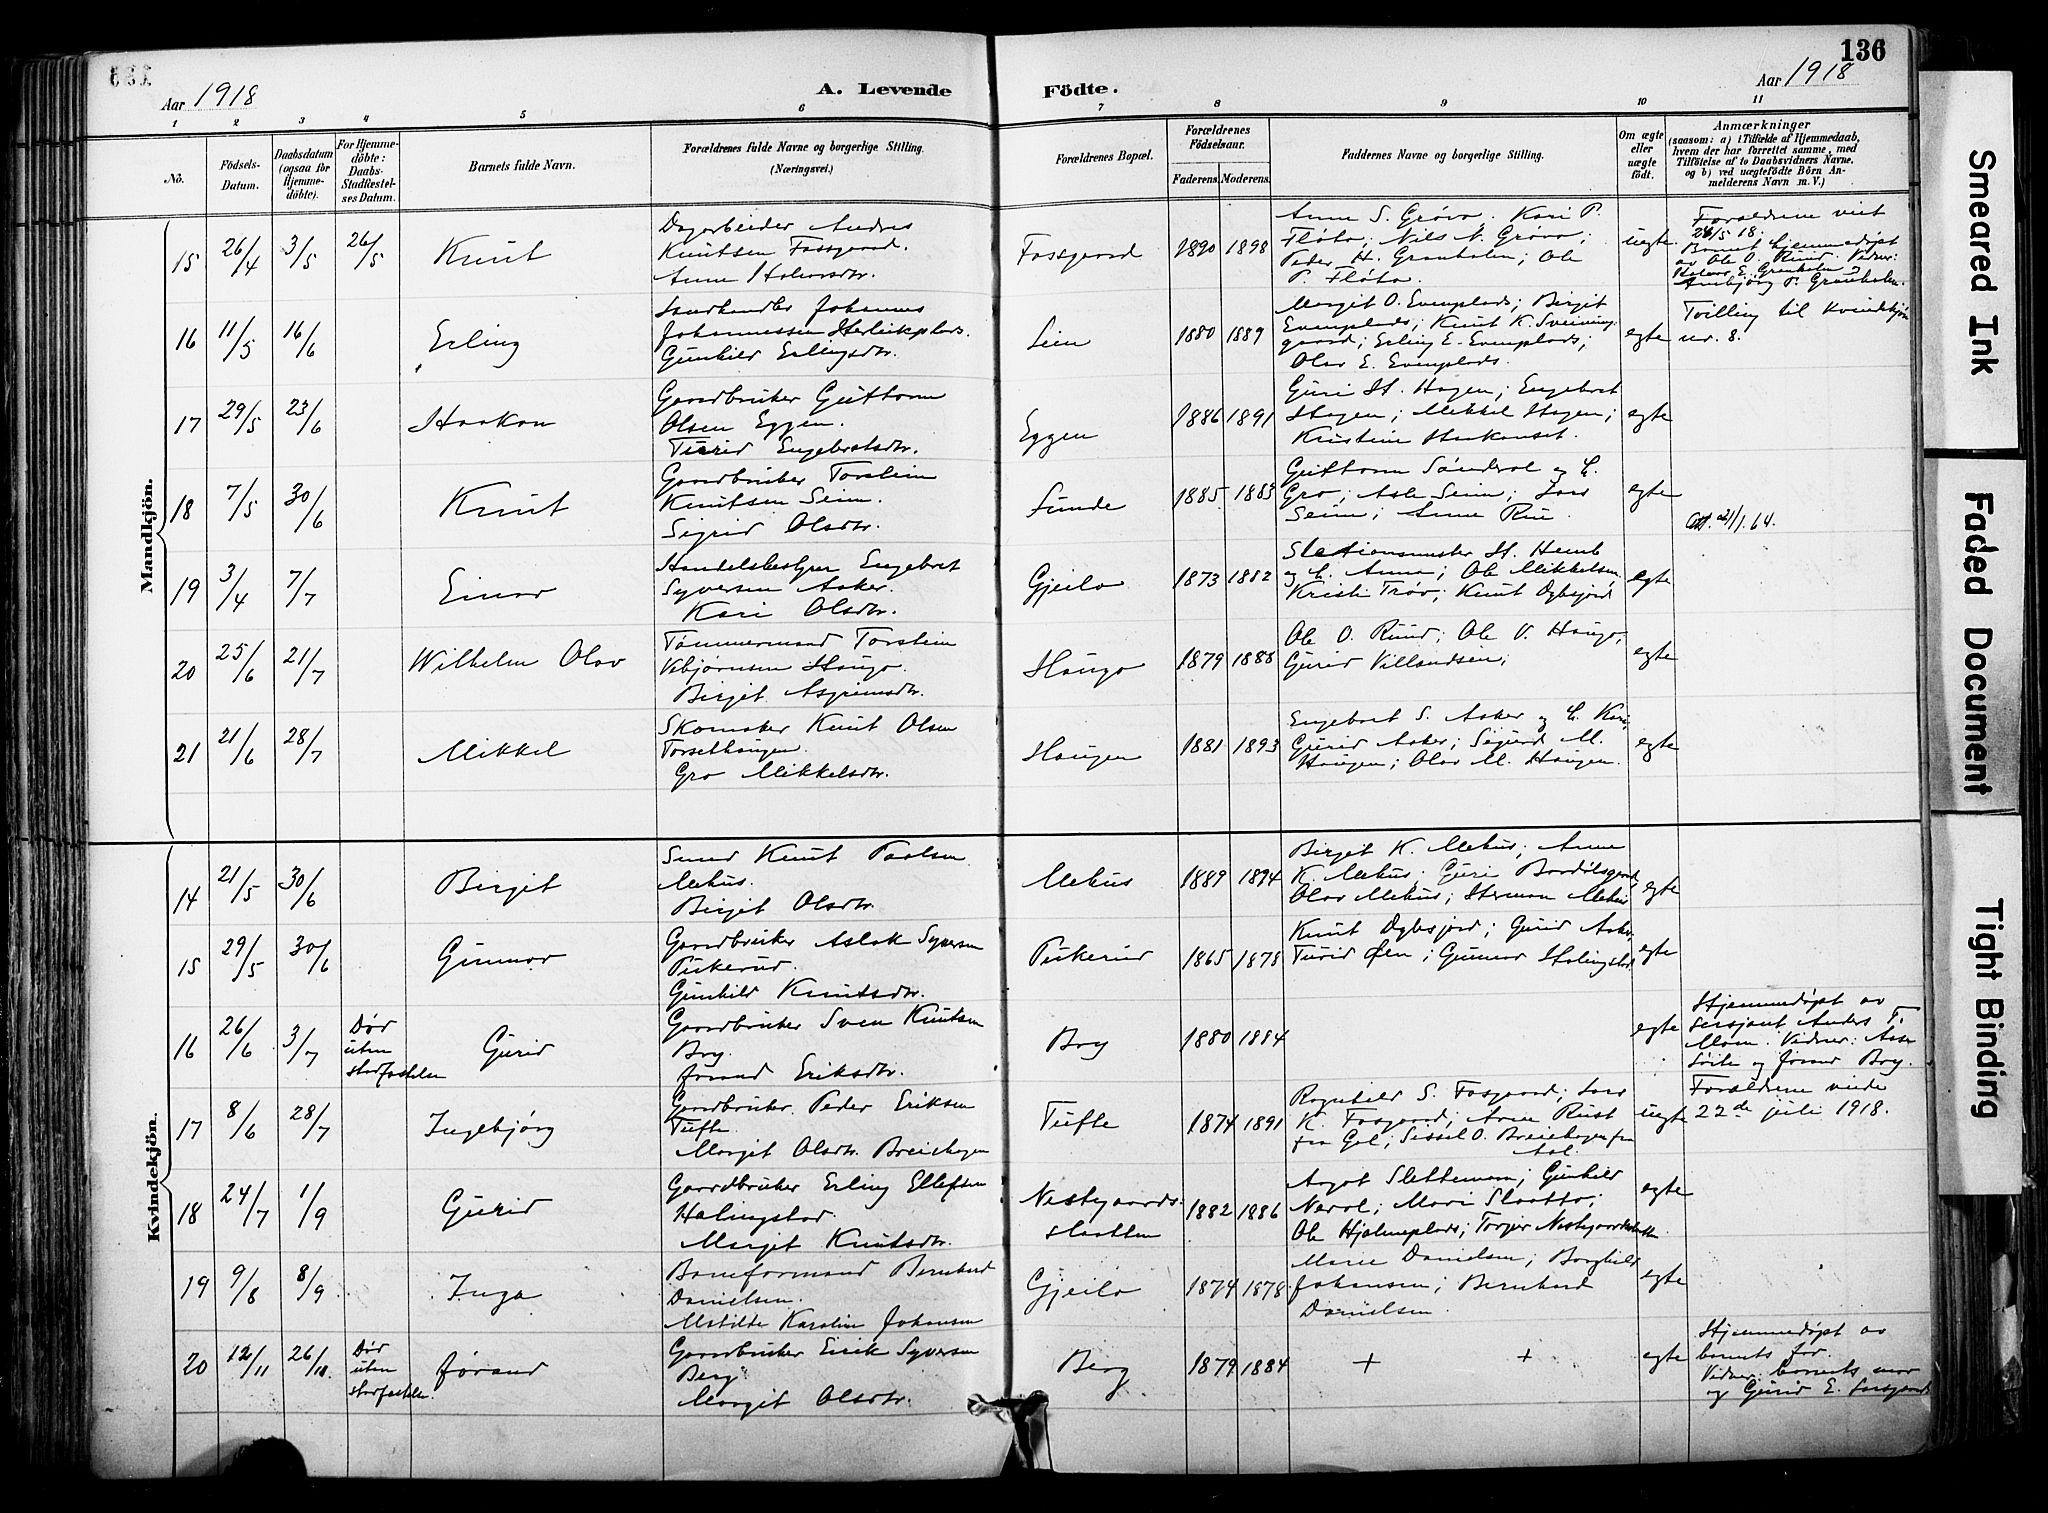 136
Aar 1918
A. Levende
Födte.
Aar 1918
1 2 3 4 5 6 7 8 9 10 11
No.
Födsels-
Datum.
Daabsdatum
(ogsaa for
Hjemme-
döbte).
For Hjemme-
döbte:
Daabs-
Stadfæstel-
ses Datum.
Barnets fulde Navn.
Forældrenes fulde Navne og borgerlige Stilling.
(Næringsvei.)
Forældrenes Bopæl.
Forældrenes
Födselsaar.
Faderens. Moderens.
Faddernes Navne og borgerlige Stilling.
Om ægte
eller
uægte
födt.
Anmærkninger
(saasom: a) i Tilfælde af Hjemmedaab,
hvem der har forrettet samme, med
Tilföielse af to Daabsvidners Navne,
og b) ved uægtefödte Börn An-
melderens Navn m. V.)
Mandkjön.
15 26/4 3/5 26/5 Knut
Dagarbeider Andres
Knutsen Fossgaard.
Anne Halvorsdtr.
Fossgaard 1890 1898
Anne S. Grøvo. Kari P.
Fløto; Nils N. Grøvo;
Peder H. Granholm; Ole
P. Fløto.
uegte
Forældrene viet
26/5 18.
Barnet hjemmedøpt
av Ole O. Ruud. Vidner:
Halvor E. Granholm og
Annbjørg P. Granholm.
16 11/5 16/6 Erling
Landhandler Johannes
Johannessen Herleikplads.
Gunhild Erlingsdtr.
Lien 1880 1889
Margit O. Evenplads; Birgit
Evenplads; Knut K. Sveining-
gaard; Erling E. Evenplads;
Olav E. Evenplads.
egte
Tvilling til kvindekjøn
nr. 8.
17 29/5 23/6 Haakon
Gaardbruker Guttorm
Olsen Eggen.
Turid Engebretsdtr.
Eggen 1886 1891
Guri H. Hagen; Engebret
Hagen; Mikkel Hagen;
Kristine Haakonset.
egte
18 7/5 30/6 Knut
Gaardbruker Torstein
Knutsen Seim.
Sigrid Olsdtr.
Sunde 1885 1883
Guttorm Sønderol og h.
Gro; Asle Seim; Lars
Seim; Anne Rue.
egte
Att. 21/1.64.
19 3/4 7/7 Einar
Handelsbestyrer Engebret
Syversen Aaker.
Kari Olsdtr.
Gjeilo 1873 1882
Stationsmester H. Hemb
og h. Anna; Ole Mikkelsen,
Kristi Trøo; Knut Dybsjord
egte
20 25/6 21/7 Wilhelm Olav
Tømmermand Torstein
Vebjørnsen Haugo.
Birgit Asgrimsdtr.
Haugo 1879 1888
Ole O. Ruud; Ole V. Haugo;
Gurid Villandsen;
egte
21 21/6 28/7 Mikkel
Skomaker Knut Olsen
Torsethaugen.
Gro Mikkelsdtr.
Haugen 1881 1893
Engebret S. Aaker og h. Kari;
Gurid Aaker; Sigurd M.
Haugen; Olav M. Haugen.
egte
Kvindekjön.
14 21/5 30/6 Birgit
Smed Knut Paalsen
Mehus.
Birgit Olsdtr.
Mehus 1889 1894
Birgit K. Mehus; Anne
K. Mehus; Guri Bardølsgaard;
Olav Mehus; Herman Mehus
egte
15 29/5 30/6 Gunvor
Gaardbruker Aslak Syversen
Pukerud.
Gunhild Knutsdtr.
Pukerud 1865 1878
Knut Dybsjord; Gurid Aaker,
Turid Øen; Gunnar Halingstad
egte
16 26/6 3/7 Død
uten
stadfæstelse
Gurid
Gaardbruker Sven Knutsen
Bry.
Jørand Eriksdtr.
Bry 1880 1884
egte
Hjemmedøpt av
sersjant Anders T.
Moen. Vidner: Asse
Søile og Jørand Bry.
17 8/6 28/7 Ingebjørg
Gaardbruker Peder Eriksen
Tufte.
Margit Olsdtr. Breiehagen
Tufte 1874 1891
Ragnhild S. Fosgaard; Lars
K. Fosgaard; Arne Rust
fra Gol; Sissel O. Breiehagen fra
Aal.
uegte
Forældrene viede
22de juli 1918.
18 24/7 1/9 Gurid
Gaardbruker Erling Ellefsen
Halingstad.
Margit Knutsdtr.
Nestegaards-
slaatten 1882 1886
Aagot Slettemoen; Gunhild
Nerol; Mari Slaatto;
Ole Hjelmeplads; Torgeir Nestegaardslaatten
egte
19 9/8 8/9 Inga
Baneformand Bernhard
Danielsen.
Matilde Karoline Johansen
Gjeilo 1874 1878
Marie Danielsen; Borghild
Johansen; Bernhard
Danielsen.
egte
20 12/11 26/10. Død
uten
stadfæstelse.
Jørand
Gaardbruker Eirik Syversen
Berg
Margit Olsdtr.
Berg 1879 1884 + + egte
Hjemmedøpt av
barnets far.
Vidner: barnets mor
og Gurid E.
Smeared Ink
Faded Document
Tight Binding